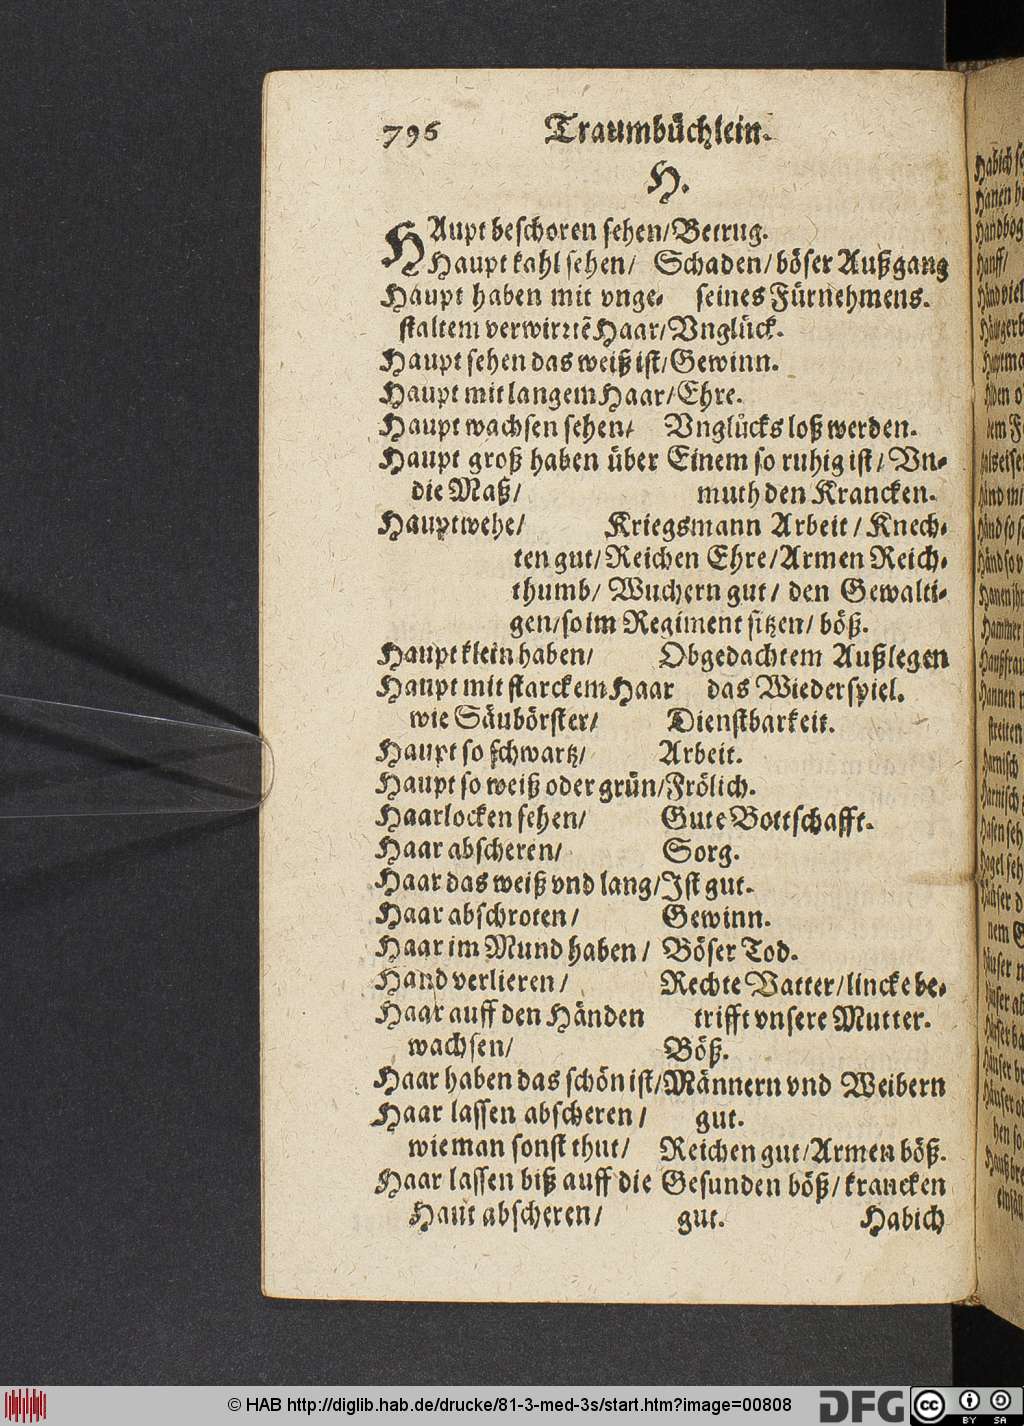 796 Traumbüchlein.
H.
HAupt beschoren sehen/Betrug.
Haupt kahl sehen/ Schaden/böser Außgang
Haupt haben mit vnge- seines Fürnehmens.
staltem verwirrtẽ Haar/Vnglück.
Haupt sehen das weiß ist/Gewinn.
Haupt mit langem Haar/Ehre.
Haupt wachsen sehen/ Vnglücks loß werden.
Haupt groß haben über Einem so ruhig ist/ Vn-
die Maß/ muth den Krancken.
Hauptwehe/ Kriegsmann Arbeit/ Knech-
ten gut/Reichen Ehre/Armen Reich-
thumb/ Wuchern gut/ den Gewalti-
gen/so im Regiment sitzen/ böß.
Haupt klein haben/ Obgedachtem Außlegen
Haupt mit starckem Haar das Wiederspiel.
wie Säubörster/ Dienstbarkeit.
Haupt so schwartz/ Arbeit.
Haupt so weiß oder grün/Frölich.
Haarlocken sehen/ Gute Bottschafft.
Haar abscheren/ Sorg.
Haar das weiß vnd lang/Ist gut.
Haar abschroten/ Gewinn.
Haar im Mund haben/ Böser Tod.
Hand verlieren/ Rechte Vatter/lincke be-
Haar auff den Händen trifft vnsere Mutter.
wachsen/ Böß.
Haar haben das schön ist/Männern vnd Weibern
Haar lassen abscheren/ gut.
wie man sonst thut/ Reichen gut/Armen böß.
Haar lassen biß auff die Gesunden böß/ krancken
Haut abscheren/ gut. Habich
© HAB http://diglib.hab.de/drucke/81-3-med-3s/start.htm?image=00808
DFG
cc BY SA